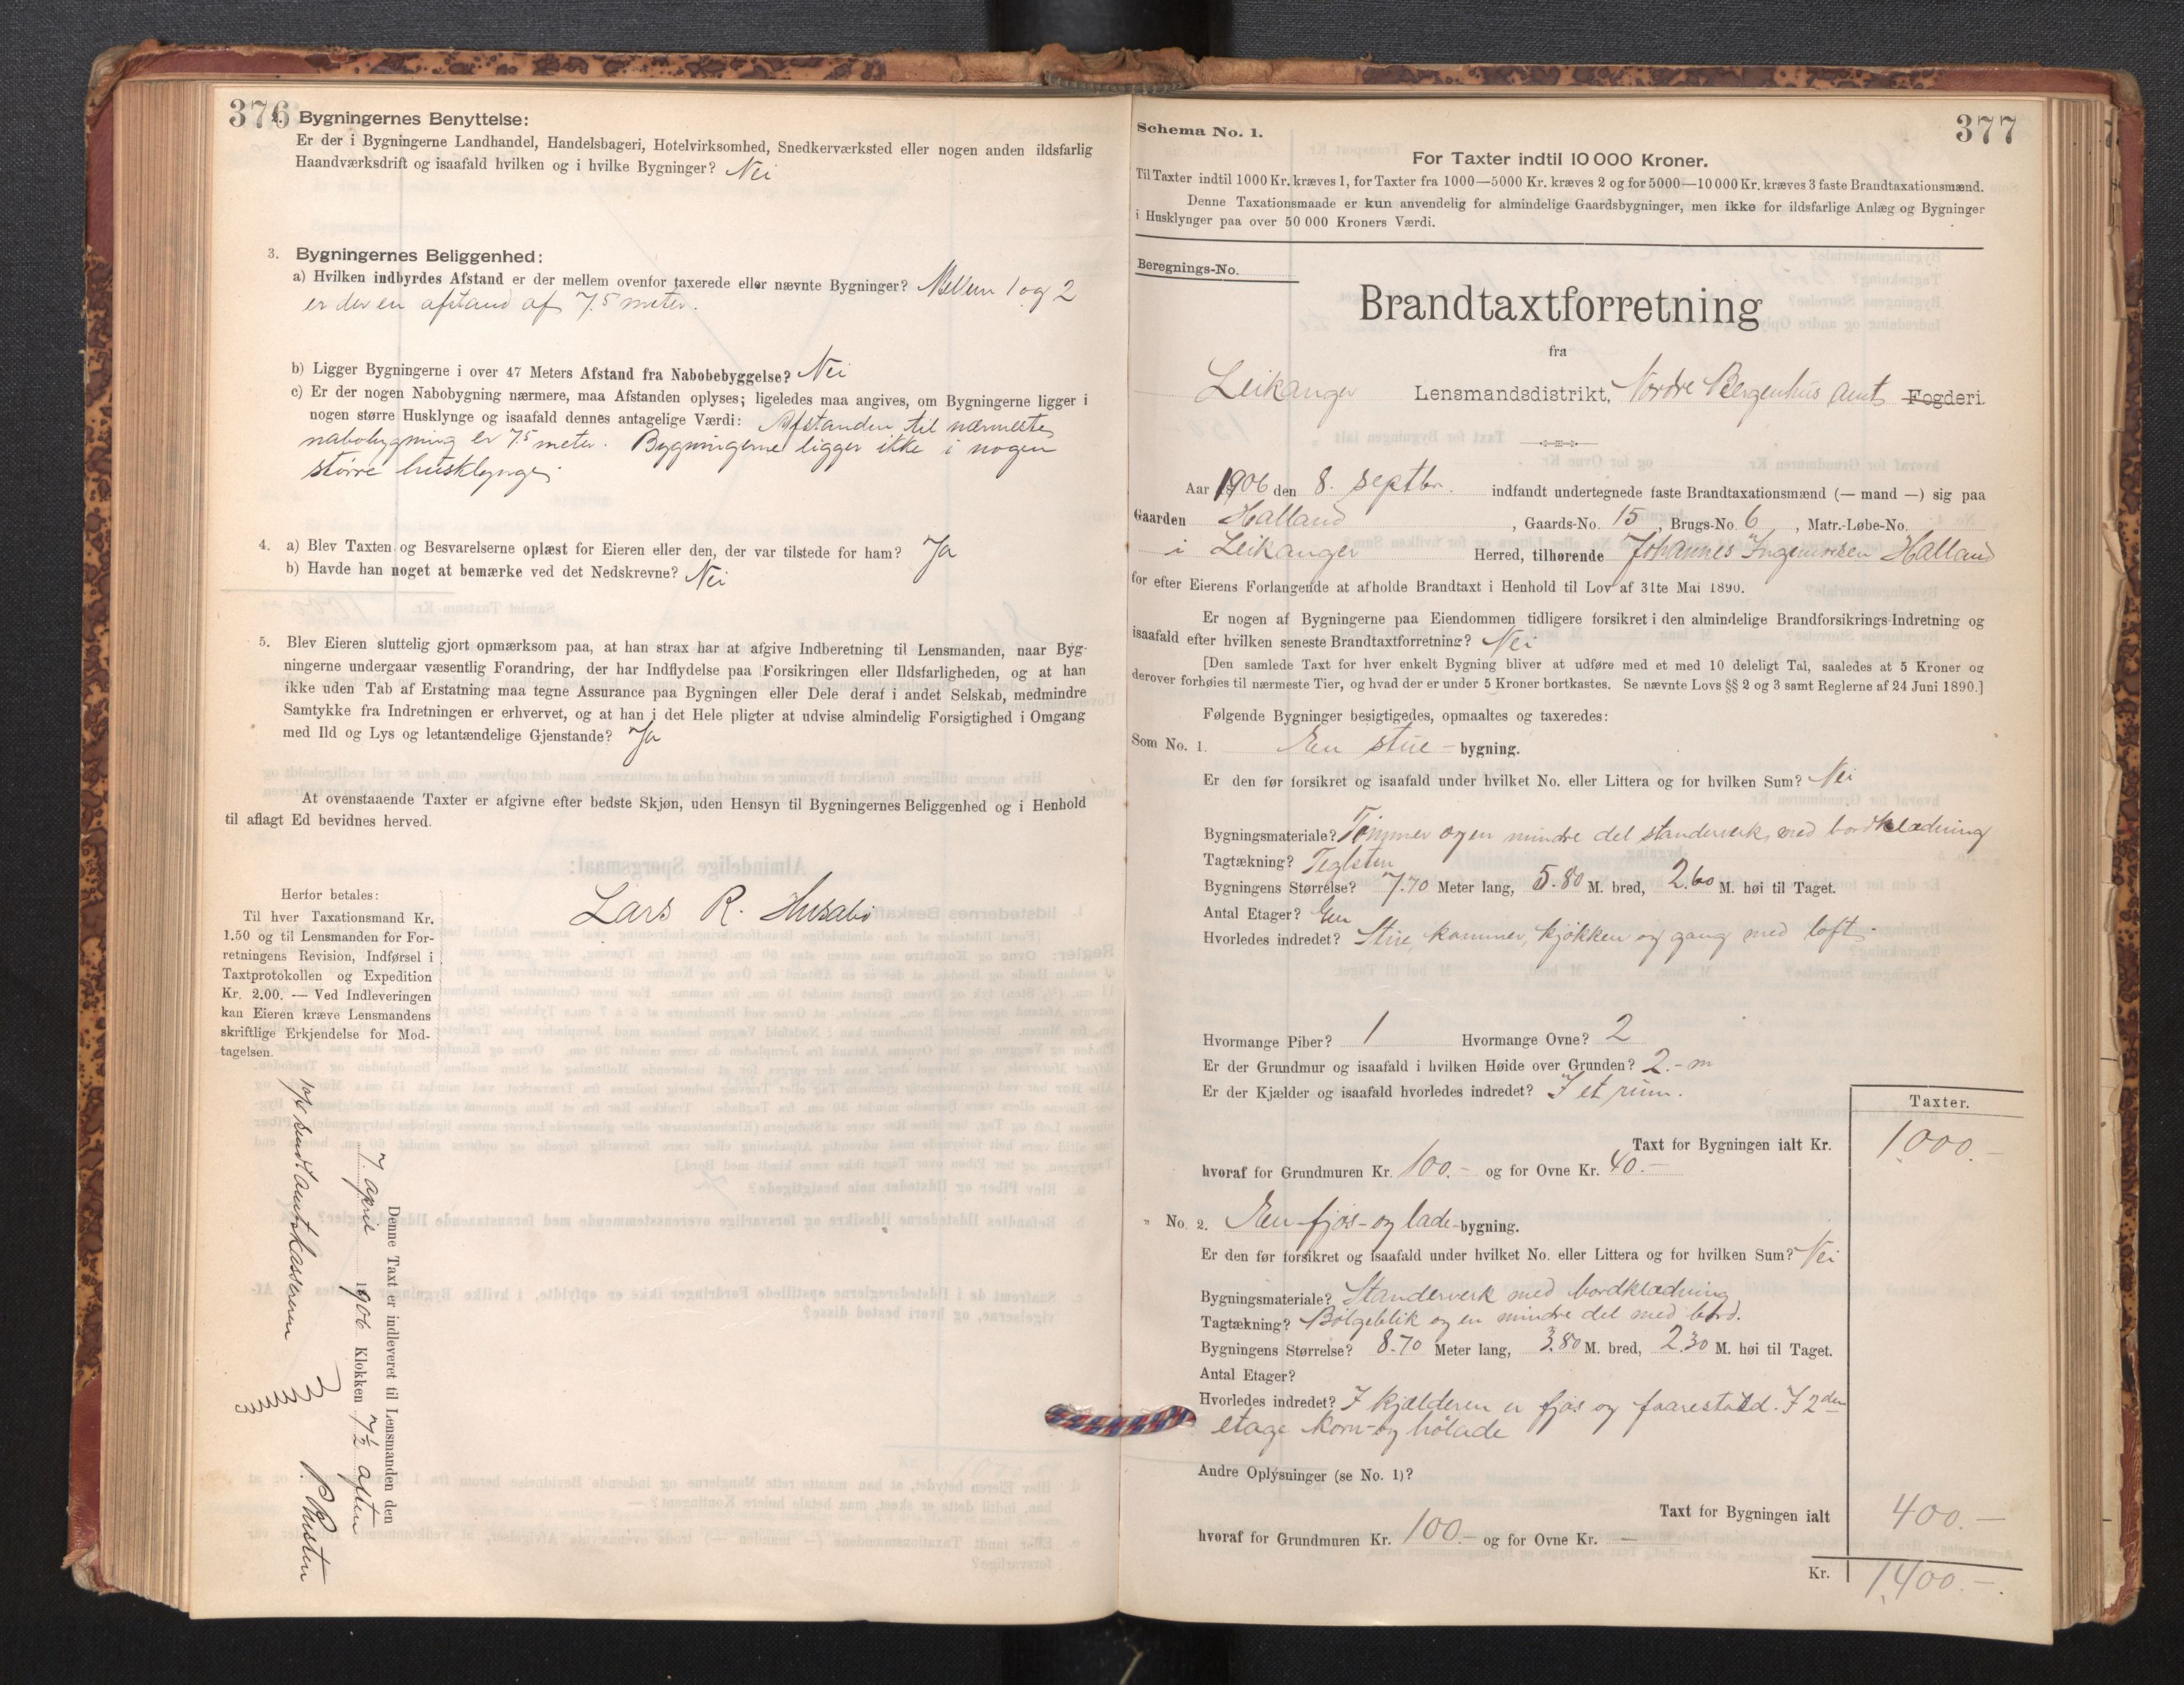 376
2. Bygningernes Benyttelse:
Er der i Bygningerne Landhandel, Handelsbageri, Hotelvirksomhed, Snedkerværksted eller nogen anden ildsfarlig
Haandværksdrift og isaafald hvilken og i hvilke Bygninger? Nei
3. Bygningernes Beliggenhed:
a) Hvilken indbyrdes Afstand er der mellem ovenfor taxerede eller nævnte Bygninger? Mellem 1 og 2
er der en afstand af 7.5 meter.
b) Ligger Bygningerne i over 47 Meters Afstand fra Nabobebyggelse? Nei
c) Er der nogen Nabobygning nærmere, maa Afstanden oplyses; ligeledes maa angives, om Bygningerne ligger i
nogen større Husklynge og isaafald dennes antagelige Værdi: Afstanden til nærmeste
nabobygning er 7.5 meter. Bygningerne ligger ikke i nogen
större husklynge.
4. a) Blev Taxten og Besvarelserne oplæst for Eieren eller den, der var tilstede for ham? Ja
b) Havde han noget at bemærke ved det Nedskrevne? Nei
5. Blev Eieren sluttelig gjort opmærksom paa, at han strax har at afgive Indberetning til Lensmanden, naar Byg-
ningerne undergaar væsentlig Forandring, der har Indflydelse paa Forsikringen eller Ildsfarligheden, og at han
ikke uden Tab af Erstatning maa tegne Assurance paa Bygningen eller Dele deraf i andet Selskab, medmindre
Samtykke fra Indretningen er erhvervet, og at han i det Hele pligter at udvise almindelig Forsigtighed i Omgang
med Ild og Lys og letantændelige Gjenstande? Ja
At ovenstaaende Taxter er afgivne efter bedste Skjøn, uden Hensyn til Bygningernes Beliggenhed og i Henhold
til aflagt Ed bevidnes herved.
Lars R. Husabö
Herfor betales:
Til hver Taxationsmand Kr.
1.50 og til Lensmanden for For-
retningens Revision, Indførsel i
Taxtprotokollen og Expedition
Kr. 2.00. — Ved Indleveringen
kan Eieren kræve Lensmandens
skriftlige Erkjendelse for Mod-
tagelsen.
Denne Taxt er indleveret til Lensmanden den
7 april 1906 Klokken 7½ aften
sendt amtskassereren
377
Schema No. 1.
For Taxter indtil 10 000 Kroner.
Til Taxter indtil 1000 Kr. kræves 1, for Taxter fra 1000—5000 Kr. kræves 2 og for 5000—10 000 Kr. kræves 3 faste Brandtaxationsmænd.
Denne Taxationsmaade er kun anvendelig for almindelige Gaardsbygninger, men ikke for ildsfarlige Anlæg og Bygninger
i Husklynger paa over 50 000 Kroners Værdi.
Beregnings-No.
Brandtaxtforretning
fra
Leikanger Lensmandsdistrikt, Nordre Bergenhus Amt Fogderi.
Aar 1906 den 8. septbr. indfandt undertegnede faste Brandtaxationsmænd (— mand —) sig paa
Gaarden Halland, Gaards-No. 15, Brugs-No. 6, Matr.-Løbe-No.
i Leikanger Herred, tilhørende Johannes Ingemresen Halland
for efter Eierens Forlangende at afholde Brandtaxt i Henhold til Lov af 31te Mai 1890.
Er nogen af Bygningerne paa Eiendommen tidligere forsikret i den almindelige Brandforsikrings-Indretning og
isaafald efter hvilken seneste Brandtaxtforretning? Nei
[Den samlede Taxt for hver enkelt Bygning bliver at udføre med et med 10 deleligt Tal, saaledes at 5 Kroner og
derover forhøies til nærmeste Tier, og hvad der er under 5 Kroner bortkastes. Se nævnte Lovs §§ 2 og 3 samt Reglerne af 24 Juni 1890.]
Følgende Bygninger besigtigedes, opmaaltes og taxeredes:
Som No. 1. En stue-bygning.
Er den før forsikret og isaafald under hvilket No. eller Littera og for hvilken Sum? Nei
Bygningsmateriale? Tömmer og en mindre del standerverk med bordklædning
Tagtækning? Teglsten
Bygningens Størrelse? 7.70 Meter lang, 5.80 M. bred, 2.60 M. høi til Taget.
Antal Etager? En
Hvorledes indredet? Stue, kammer, kjökken og gang med loft.
Hvormange Piber? 1 Hvormange Ovne? 2
Er der Grundmur og isaafald i hvilken Høide over Grunden? 2.- m
Er der Kjælder og isaafald hvorledes indredet? I et rum.
Taxter.
Taxt for Bygningen ialt Kr. 1000.-
hvoraf for Grundmuren Kr. 100.- og for Ovne Kr. 40.-
" No. 2. En fjös- og lade-bygning.
Er den før forsikret og isaafald under hvilket No. eller Littera og for hvilken Sum? Nei
Bygningsmateriale? Standerverk med bordklædning
Tagtækning? Bölgeblik og en mindre del med bord.
Bygningens Størrelse? 8.70 Meter lang, 3.80 M. bred, 2.30 M. høi til Taget.
Antal Etager?
Hvorledes indredet? I kjælderen er fjös og faarestald. I 2den
etage korn- og hölade
Andre Oplysninger (se No. 1)?
Taxt for Bygningen ialt 400.-
hvoraf for Grundmuren Kr. 100.- og for Ovne Kr. —
Kr. 1,400.-